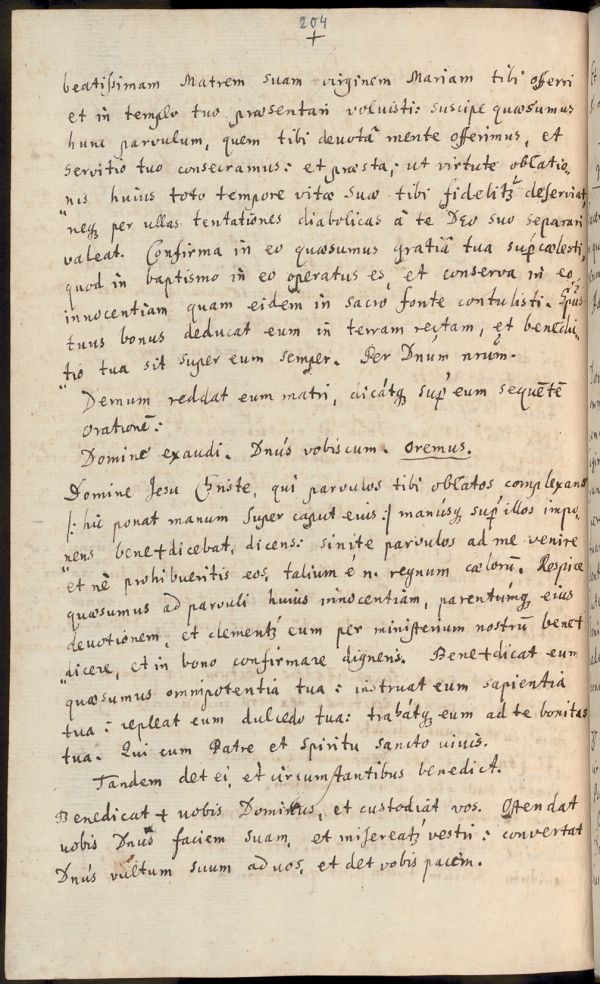 204
+
beatissimam Matrem suam virginem Mariam tibi offerri
et in templo tuo præsentari voluisti: suscipe quæsumus
hunc parvulum, quem tibi devotâ mente offerimus, et
servitio tuo consecramus: et præsta, ut virtute oblatio,,
nis huius toto tempore vitæ suæ tibi fidelitʒ deserviat,
"neqʒ per ullas tentationes diabolicas â te DEO suo separari
valeat. Confirma in eo quæsumus gratiâ tua sup̃cælesti,
quod in baptismo in eo operatus es, et conserva in eo
innocentiam quam eidem in sacro fonte contulisti. Sp̃us
tuus bonus deducat eum in terram rectam, et benedi,,
"tio tua sit super eum semper. Per Dnúm nrum̃.
Demum reddat eum matri, dicátqʒ sup̃ eum sequētē
orationē:
Domine exaudi. Dnús vobiscum. Oremus.
Domine Jesu Christe, qui parvulos tibi oblatos complexans
/: hic ponat manum super caput eius :/ manúsqʒ sup̃ illos impo,,
"nens bene+dicebat, dicens: sinite parvulos ad me venire
"et nè prohibueritis eos, talium é n. regnum cælorũ. Respice
quæsumus ad parvuli huius innocentiam, parentúmqʒ eius
devotionem, et clementʒ eum per ministerium nostrũ bene+
"dicere, et in bono confirmare digneris. Bene+dicat eum
quæsumus omnipotentia tua: instruat eum sapientia
tua: repleat eum dulcedo tua: trahátqʒ eum ad te bonitas
tua. Qui cum Patre et Spiritu sancto vivis.
Tandem det ei, et circumstantibus benedict.
Benedicat + vobis Dominus, et custodiat vos. Ostendat
vobis Dnús faciem suam, et misereatʒ vestri: convertat
Dnús vultum suum ad vos, et det vobis pacem.